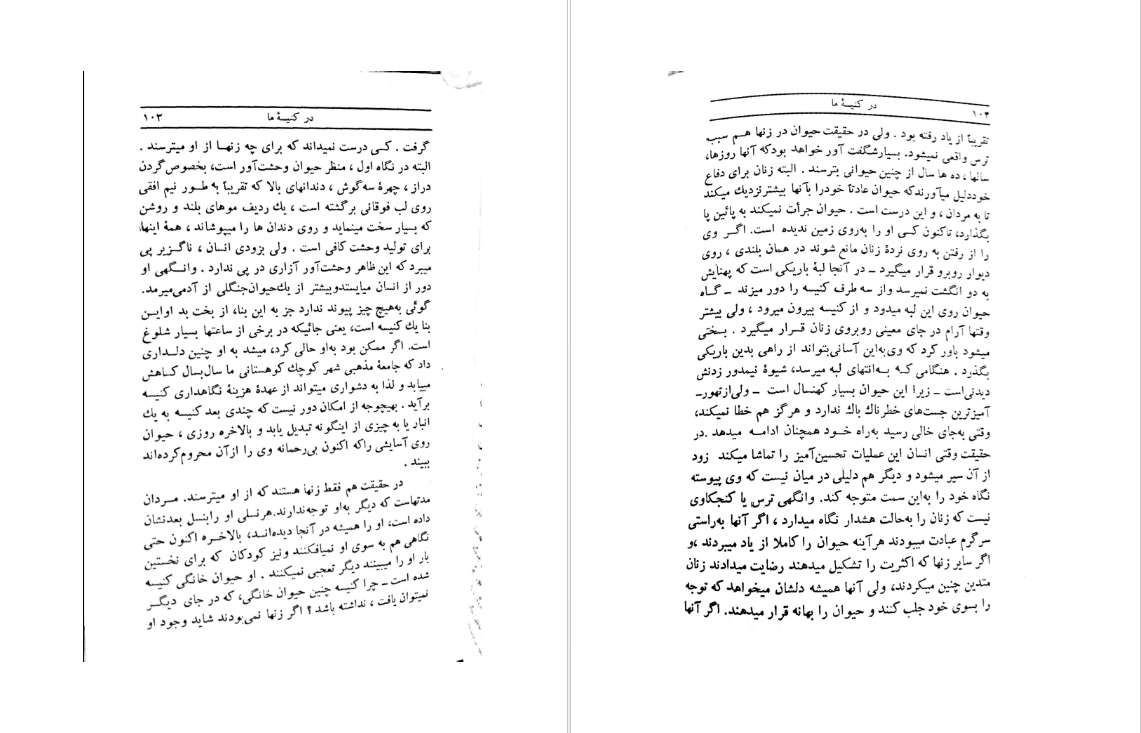 ۱۰۳ در کنیسهٔ ما
گرفت . کسی درست نمیداند که برای چه زنها از او میترسند .
البته در نگاه اول ، منظر حیوان وحشت‌آور است، بخصوص گردن
دراز ، چهرهٔ سه‌گوش ، دندانهای بالا که تقریباً به طور نیم افقی
روی لب فوقانی برگشته است ، یك ردیف موهای بلند و روشن
که بسیار سخت مینماید و روی دندان ها را میپوشاند ، همهٔ اینها،
برای تولید وحشت کافی است . ولی بزودی انسان ، ناگزیر پی
میبرد که این ظاهر وحشت‌آور آزاری در پی ندارد . وانگهی او
دور از انسان میایستدوبیشتر از یك‌حیوان‌جنگلی از آدمی‌میرمد.
گوئی به‌هیچ چیز پیوند ندارد جز به این بنا، از بخت بد اوایـن
بنا یك کنیسه است، یعنی جائیکه در برخی از ساعتها بسیار شلوغ
است. اگر ممکن بود به‌او حالی کرد، میشد به او چنین دلـداری
داد که جامعهٔ مذهبی شهر کوچك کوهستانی ما سال‌بسال کـاهش
مییابد و لذا به دشواری میتواند از عهدهٔ هزینهٔ نگاهداری کنیسه
برآید . بهیچوجه از امکان دور نیست که چندی بعد کنیسه به یك
انبار یا به چیزی از اینگونه تبدیل یابد و بالاخره روزی ، حیوان
روی آسایشی راکه اکنون بی‌رحمانه وی را ازآن محروم‌کرده‌اند
ببیند .
در حقیقت هم فقط زنها هستند که از او میترسند. مـردان
مدتهاست که دیگر به‌او توجه‌ندارند.هرنسلی او رابنسل بعدنشان
داده است، او را همیشه در آنجا دیده‌انـد، بالاخـره اکنون حتی
نگاهی هم به سوی او نمیافکنند ونیز کودکان که برای نخستین
بار او را میبینند دیگر تعجبی نمیکنند . او حیوان خانگی کنیسه
شده است ـ چرا کنیسه چنین حیوان خانگی، که در جای دیگـر
نمیتوان یافت ، نداشته باشد ؟ اگر زنها نمی‌بودند شاید وجود او
۱۰۴ در کنیسهٔ ما
تقریباً از یاد رفته بود . ولی در حقیقت حیوان در زنها هـم سبب
ترس واقعی نمیشود. بسیارشگفت آور خواهد بودکه آنها روزها،
سالها ، ده ها سال از چنین حیوانی بترسند . البته زنان برای دفاع
خوددلیل میآورندکه حیوان عادتاً خودرا بآنها بیشترنزدیك میکند
تا به مردان ، و این درست است . حیوان جرأت نمیکند به پائین پا
بگذارد، تاکنون کسی او را به‌روی زمین ندیده است. اگـر وی
را از رفتن به روی نردهٔ زنان مانع شوند در همان بلندی ، روی
دیوار روبرو قرار میگیرد ـ در آنجا لبهٔ باریکی است که پهنایش
به دو انگشت نمیرسد واز سه طرف کنیسه را دور میزند ـ گـاه
حیوان روی این لبه میدود و از کنیسه بیرون میرود ، ولی بیشتر
وقتها آرام در جای معینی روبروی زنان قـرار میگیرد . بسختی
میشود باور کرد که وی‌به‌این آسانی‌بتواند از راهی بدین باریکی
بگذرد . هنگامی کـه بـه‌انتهای لبه میرسد، شیوهٔ نیمدور زدنش
دیدنی‌است ـ زیرا این حیوان بسیار کهنسال است ـ ولی‌ازتهور‌ـ
آمیزترین جست‌های خطرناك باك ندارد و هرگز هم خطا نمیکند،
وقتی به‌جای خالی رسید به‌راه خـود همچنان ادامـه میدهد .در
حقیقت وقتی انسان این عملیات تحسین‌آمیز را تماشا میکند زود
از آن سیر میشود و دیگر هم دلیلی در میان نیست که وی پیوسته
نگاه خود را به‌این سمت متوجه کند. وانگهی ترس یا کنجکاوی
نیست که زنان را به‌حالت هشدار نگاه میدارد ، اگر آنها به‌راستی
سرگرم عبادت میبودند هرآینه حیوان را کاملا از یاد میبردند ،و
اگر سایر زنها که اکثریت را تشکیل میدهند رضایت میدادند زنان
متدین چنین میکردند، ولی آنها همیشه دلشان میخواهد که توجه
را بسوی خود جلب کنند و حیوان را بهانه قرار میدهند. اگر آنها